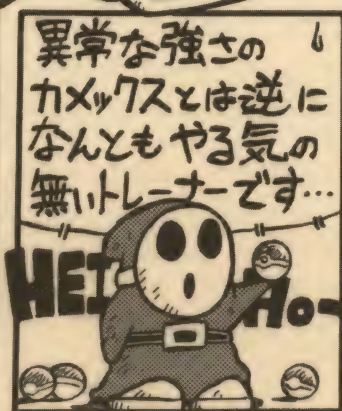 異常な強さの
カメックスとは逆に
なんともやる気の
無いトレーナーです…
HEI Ho-